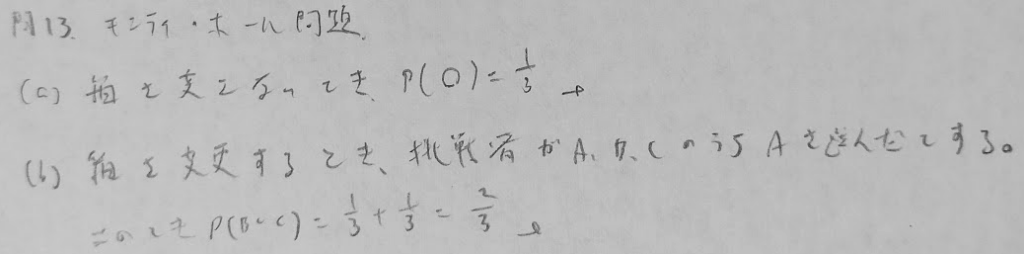 問13. モンティ・ホール問題.
(a) 箱を変えないとき、P(O)=1/3
(b) 箱を変更するとき、挑戦者がA、B、CのうちAを選んだとする。
このとき P(B∪C)=1/3+1/3=2/3